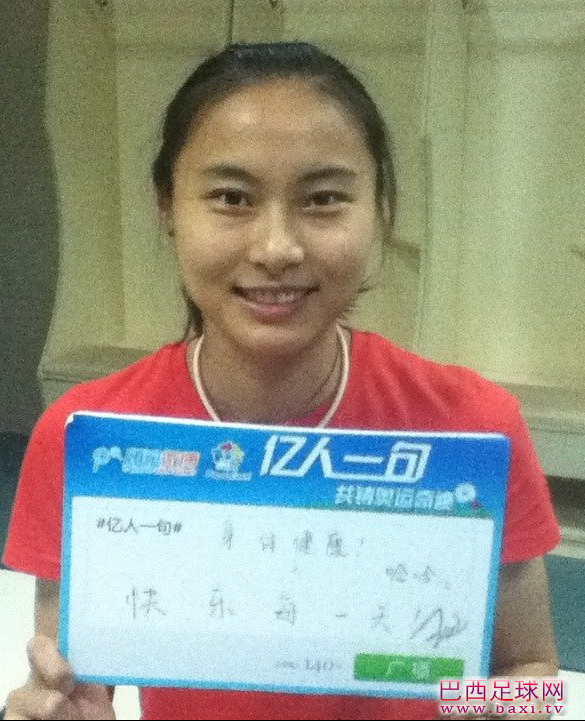 亿人一句
共铸奥运奇迹
#亿人一句#
身体健康!
哈哈。
快乐每一天
广播
巴西足球网
www.baxi.tv